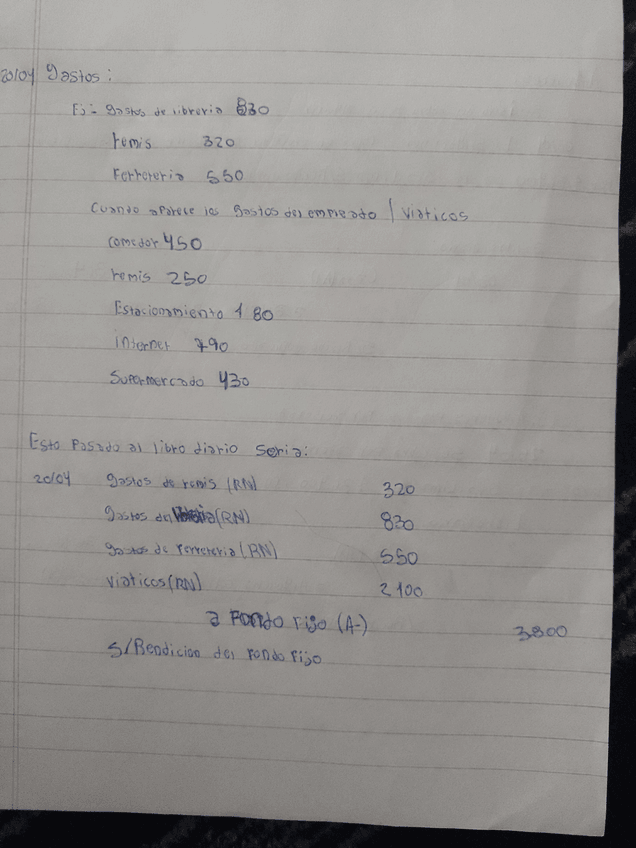 20/04 gastos:
Ej:- gastos de libreria 830
remis 320
Ferreteria 550
Cuando aparece los gastos del empleado / viaticos
comedor 450
remis 250
Estacionamiento 180
internet 790
Supermercado 430
Esto Pasado al libro diario seria:
20/04 gastos de remis (RN) 320
gastos de (RN) 830
gastos de ferreteria (RN) 550
Viaticos (RN) 2100
a Fondo fijo (A-) 3800
S/Rendicion del fondo fijo